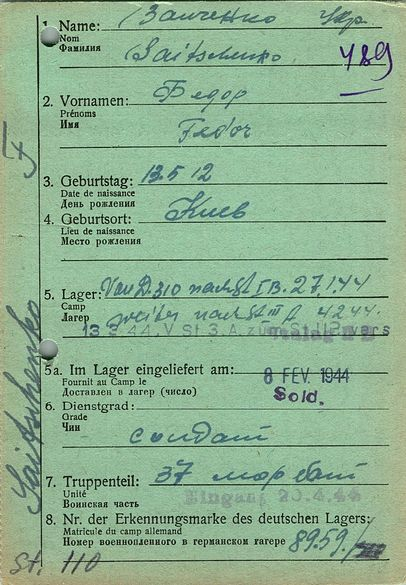 1. Name: Заиченко Укр.
Nom
Фамилия
Saitschenko
489
2. Vornamen: Федор
Prénoms
Имя
Fedor
3. Geburtstag: 13.5 12
Date de naissance
День рождения
4. Geburtsort: Киев
Lieu de naissance
Место рождения
5. Lager: Von D.310 nach St I B. 27.1.44
Camp
Лагер weiter nach St III A 4.2.44.
13.3.44 V St 3.A zum St. II D vers
5a. Im Lager eingeliefert am:
Fournit au Camp le
Доставлен в лагер (число)
8 FEV. 1944
Sold.
6. Dienstgrad:
Grade
Чин солдат
7. Truppenteil: 37 мор бат
Unité
Воинская часть
Eingang 20.4.44
8. Nr. der Erkennungsmarke des deutschen Lagers:
Matricule du camp allemand
Номер военнопленного в германском лагере 8959/
F
Saitschenko
St. 110